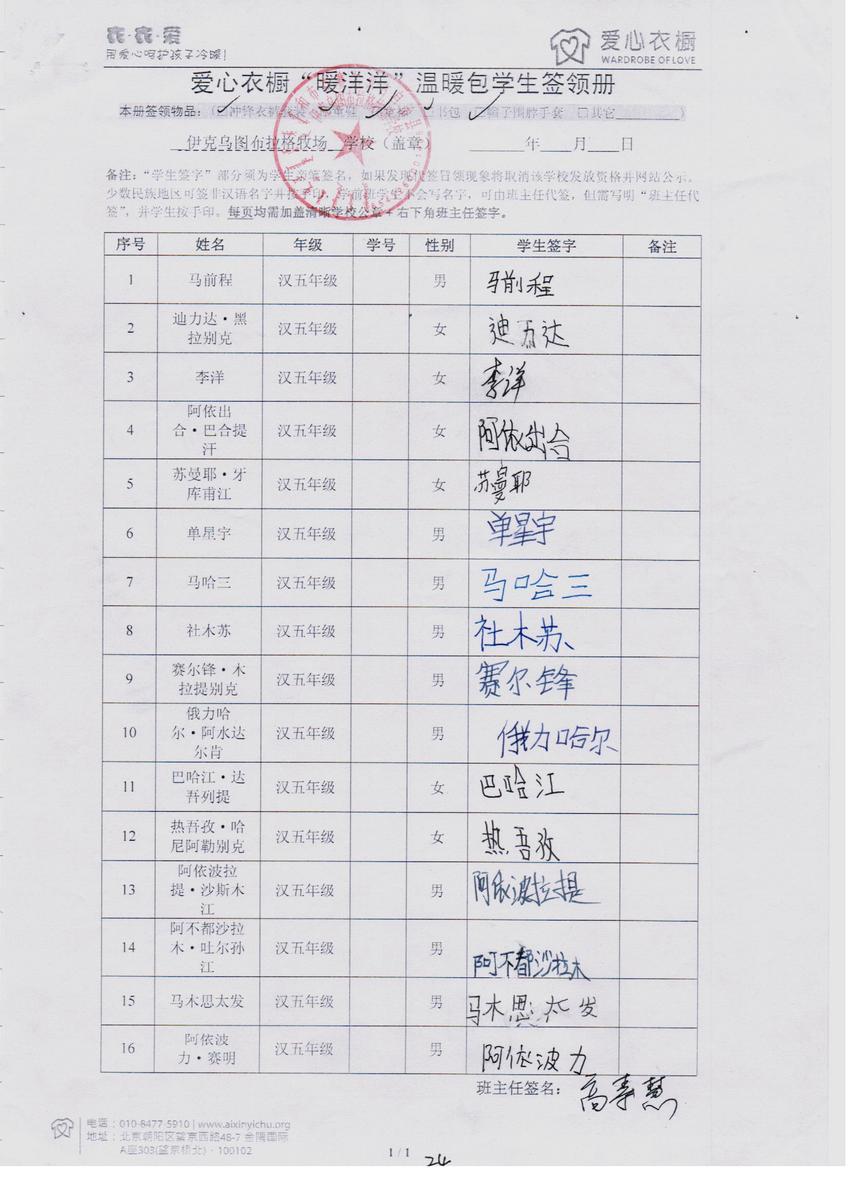 衣·衣·爱
用爱心呵护孩子冷暖!
爱心衣橱
WARDROBE OF LOVE
爱心衣橱“暖洋洋”温暖包学生签领册
本册签领物品: 书包 帽子围脖手套 □其它
伊克乌图布拉格牧场 学校(盖章) 年 月 日
备注:“学生签字”部分须为学生亲笔签名,如果发现代签冒领现象将取消该学校发放资格并网站公示。
少数民族地区可签非汉语名字并按手印。学前班学生不会写名字,可由班主任代签,但需写明“班主任代
签”,并学生按手印。每页均需加盖清晰学校公章+右下角班主任签字。
序号 姓名 年级 学号 性别 学生签字 备注
1 马前程 汉五年级 男 马前程
2 迪力达·黑拉别克 汉五年级 女 迪力达
3 李洋 汉五年级 女 李洋
4 阿依出合·巴合提汗 汉五年级 女 阿依出合
5 苏曼耶·牙库甫江 汉五年级 女 苏曼耶
6 单星宇 汉五年级 男 单星宇
7 马哈三 汉五年级 男 马哈三
8 社木苏 汉五年级 男 社木苏
9 赛尔锋·木拉提别克 汉五年级 男 赛尔锋
10 俄力哈尔·阿水达尔肯 汉五年级 男 俄力哈尔
11 巴哈江·达吾列提 汉五年级 女 巴哈江
12 热吾孜·哈尼阿勒别克 汉五年级 女 热吾孜
13 阿依波拉提·沙斯木江 汉五年级 男 阿依波拉提
14 阿不都沙拉木·吐尔孙江 汉五年级 男 阿不都沙拉木
15 马木思太发 汉五年级 男 马木思太发
16 阿依波力·赛明 汉五年级 男 阿依波力
班主任签名: 高春慧
电话:010-8477-5910 | www.aixinyichu.org
地址:北京朝阳区望京西路48-7 金隅国际
A座303(望京桥北)·100102
1 / 1
24